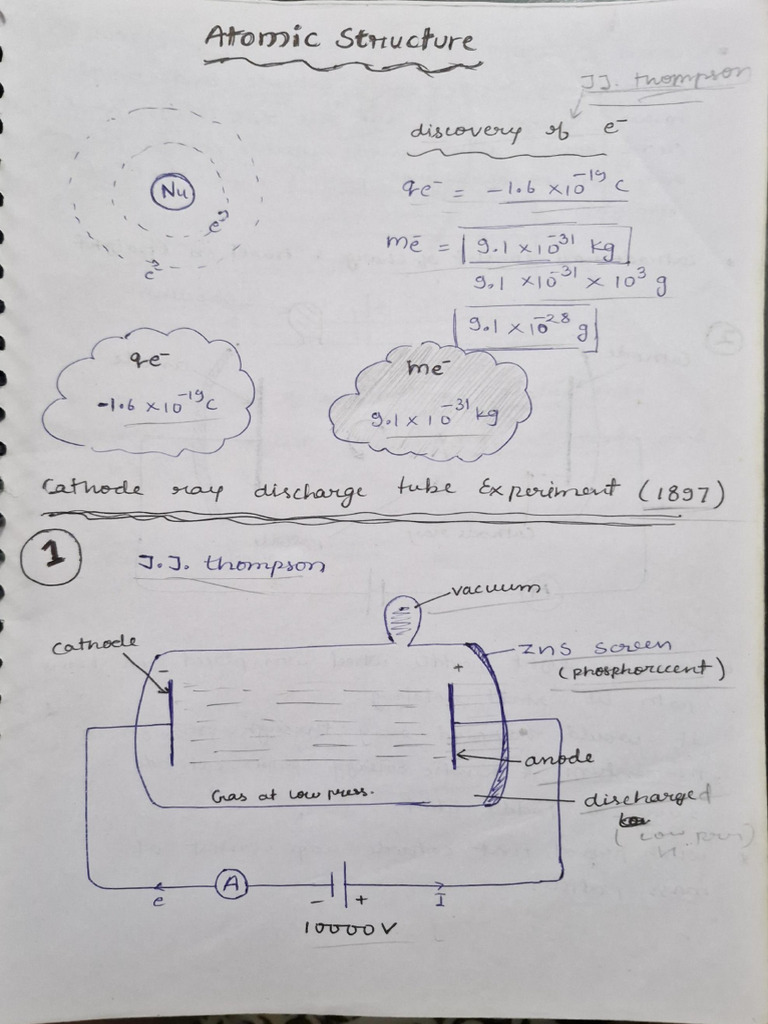 Atomic Structure
J.J. thompson
discovery of e⁻
qe⁻ = -1.6 ×10⁻¹⁹ C
me⁻ = 9.1 ×10⁻³¹ kg
9.1 ×10⁻³¹ × 10³ g
9.1 × 10⁻²⁸ g
Nu
e⁻
e⁻
qe⁻
-1.6 ×10⁻¹⁹ C
me⁻
9.1 × 10⁻³¹ kg
Cathode ray discharge tube Experiment (1897)
1
J.J. thompson
vacuum
cathode
ZnS Screen
(phosphoricent)
- +
anode
Gas at Low press.
discharged
(Low prss)
e A - + I
10000V